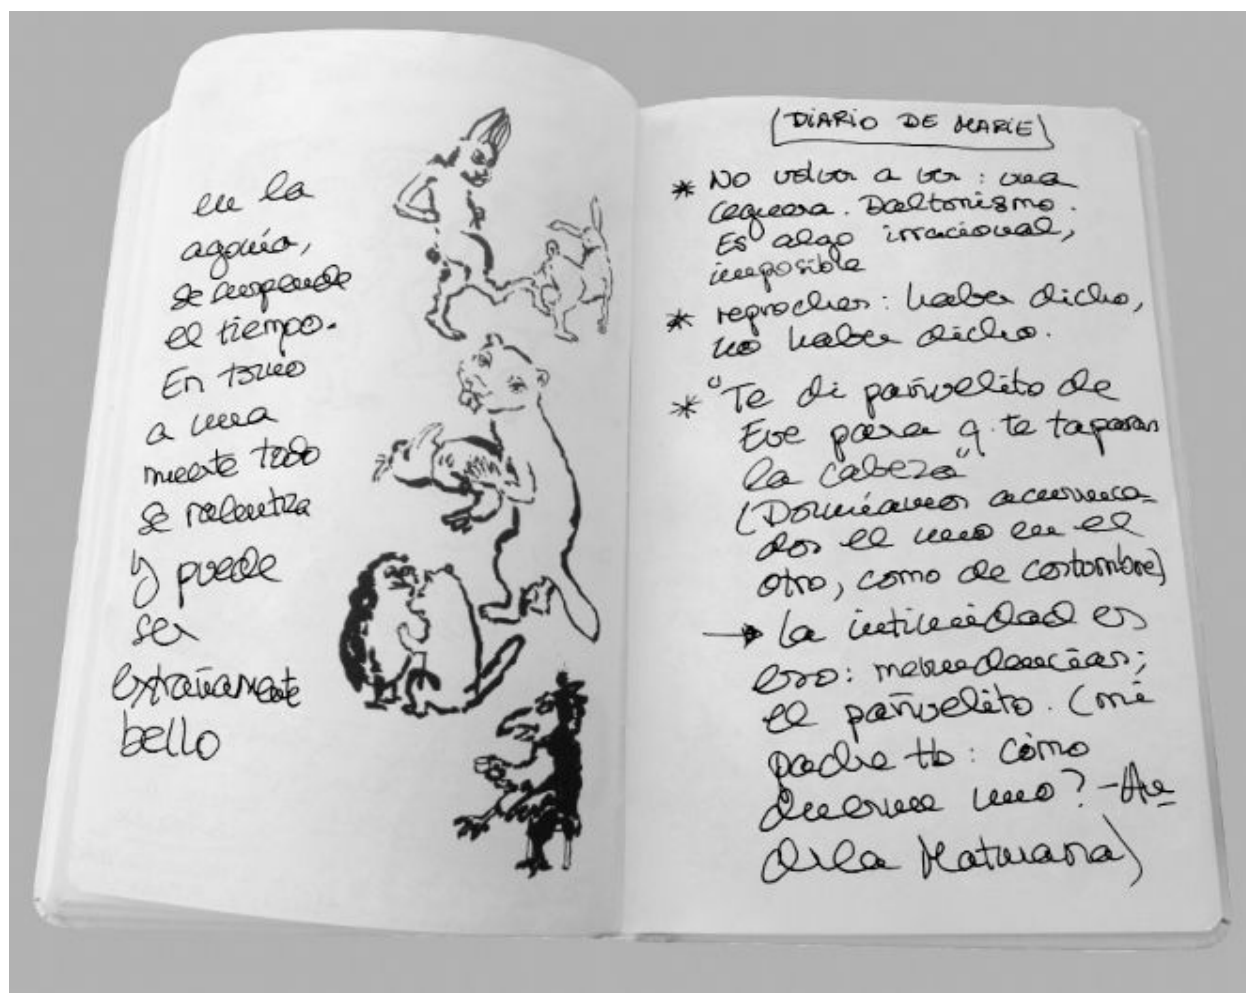 en la
agonía,
se suspende
el tiempo.
En torno
a una
muerte todo
se ralentiza
y puede
ser
extrañamente
bello
(DIARIO DE MARIE)
* No volver a ver: una
ceguera. Daltonismo.
Es algo irracional,
imposible
* reproches: haber dicho,
no haber dicho.
* "Te di pañuelito de
Eve para q te taparan
la cabeza"
(Dormíamos acurruca-
dos el uno en el
otro, como de costumbre)
→ La intimidad es
eso: menudencias;
el pañuelito. (mi
padre tb: cómo
duerme uno? -
de la Maturana)